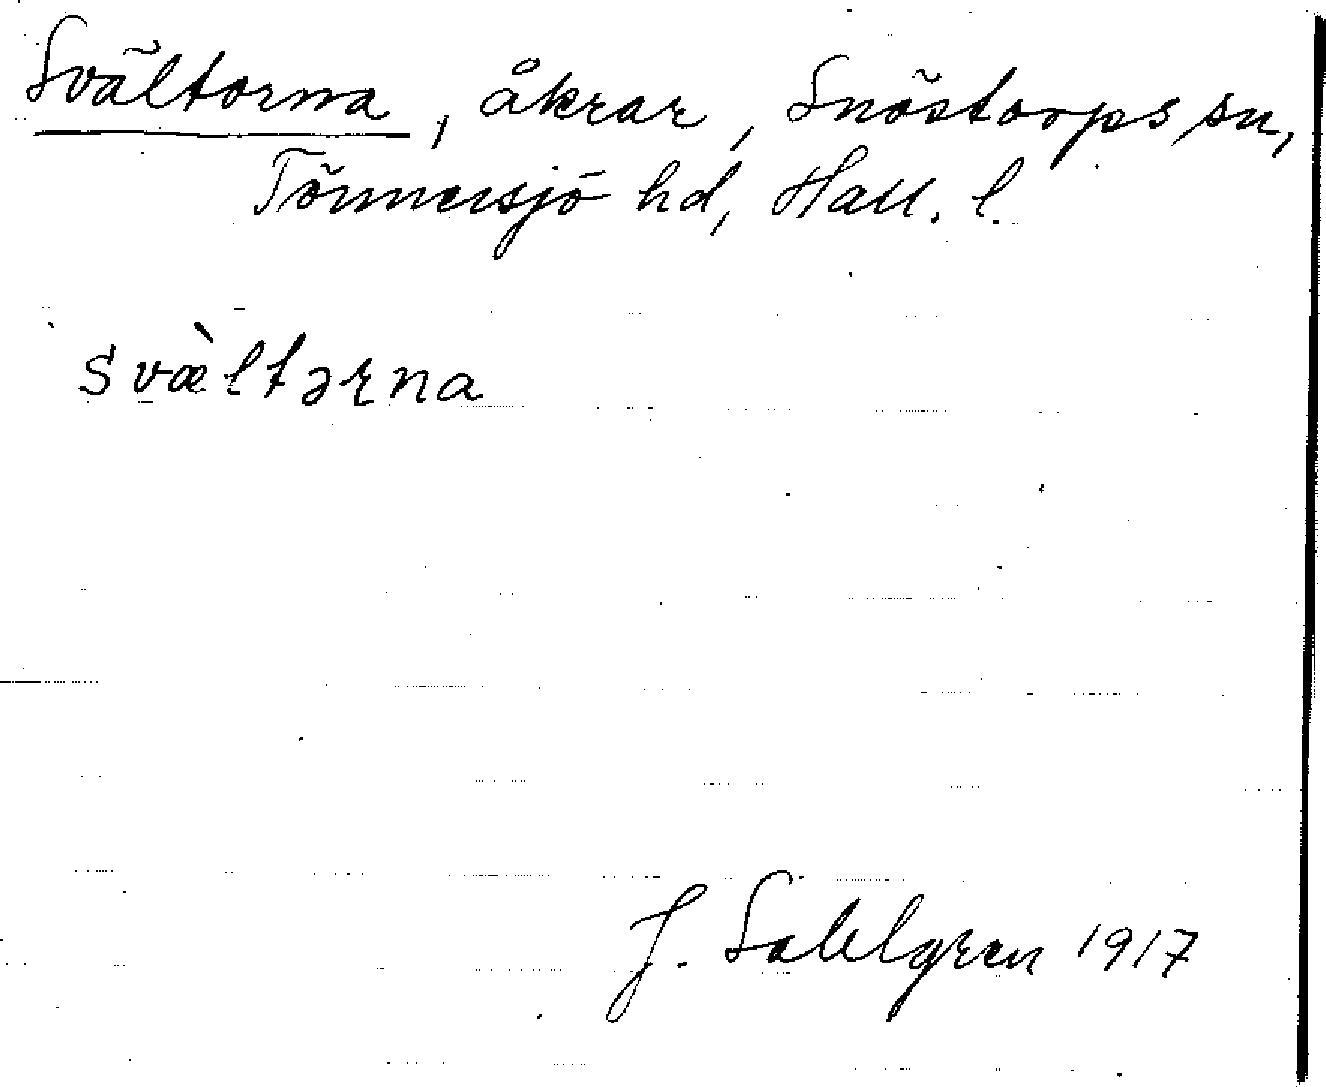 Svältorna, åkrar, Snöstorps sn,
Tönnersjö hd, Hall. l.
svæ̀ltərna
J. Sahlgren 1917